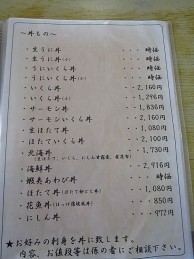 ～丼もの～
・生うに丼 ・・・ 時価
・生うに丼(小) ・・・ 時価
・うにいくら丼 ・・・ 時価
・うにいくら丼(小) ・・・ 時価
・いくら丼 ・・2,160円
・いくら丼(小) ・・1,296円
・サーモン丼 ・・1,836円
・サーモン丼(小) ・・
・生ほたて丼 ・・1,080円
・ほたていくら丼 ・・2,160円
・北海丼 ・・1,730円
・海鮮丼 ・・2,916円
・蝦夷あわび丼 ・・・ 時価
・ほたて丼 ・・1,080円
・花魚丼 ・・・850円
・にしん丼 ・・・972円
★お好みの刺身を丼に致します。
内容、お値段等は係の者にご相談下さい。